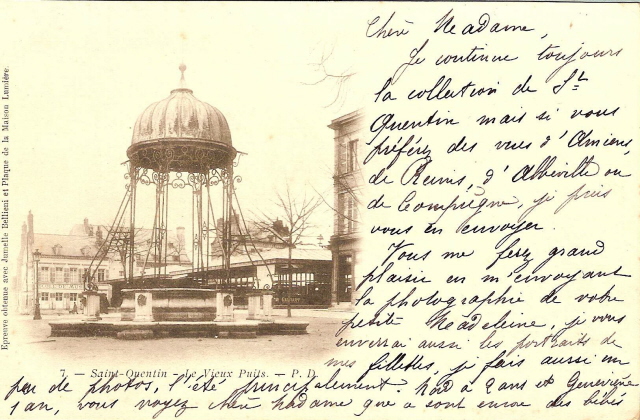 Chère Madame,
Je continue toujours
la collection de St
Quentin mais si vous
préférez des vues d'Amiens,
de Reims, d'Abbéville ou
de Compiègne, je puis
vous en envoyer.
Vous me ferez grand
plaisir en m'envoyant
la photographie de votre
petite Madeleine, je vous
enverrai aussi les portraits de
mes fillettes, je fais aussi un
peu de photos, l'été principalement. Mad a 2 ans et Geneviève
1 an, vous voyez chère Madame que ce sont encore des bébés
7. — Saint-Quentin - Le Vieux Puits. — P. D.
Epreuve obtenue avec Jumelle Bellieni et Plaque de la Maison Lumière